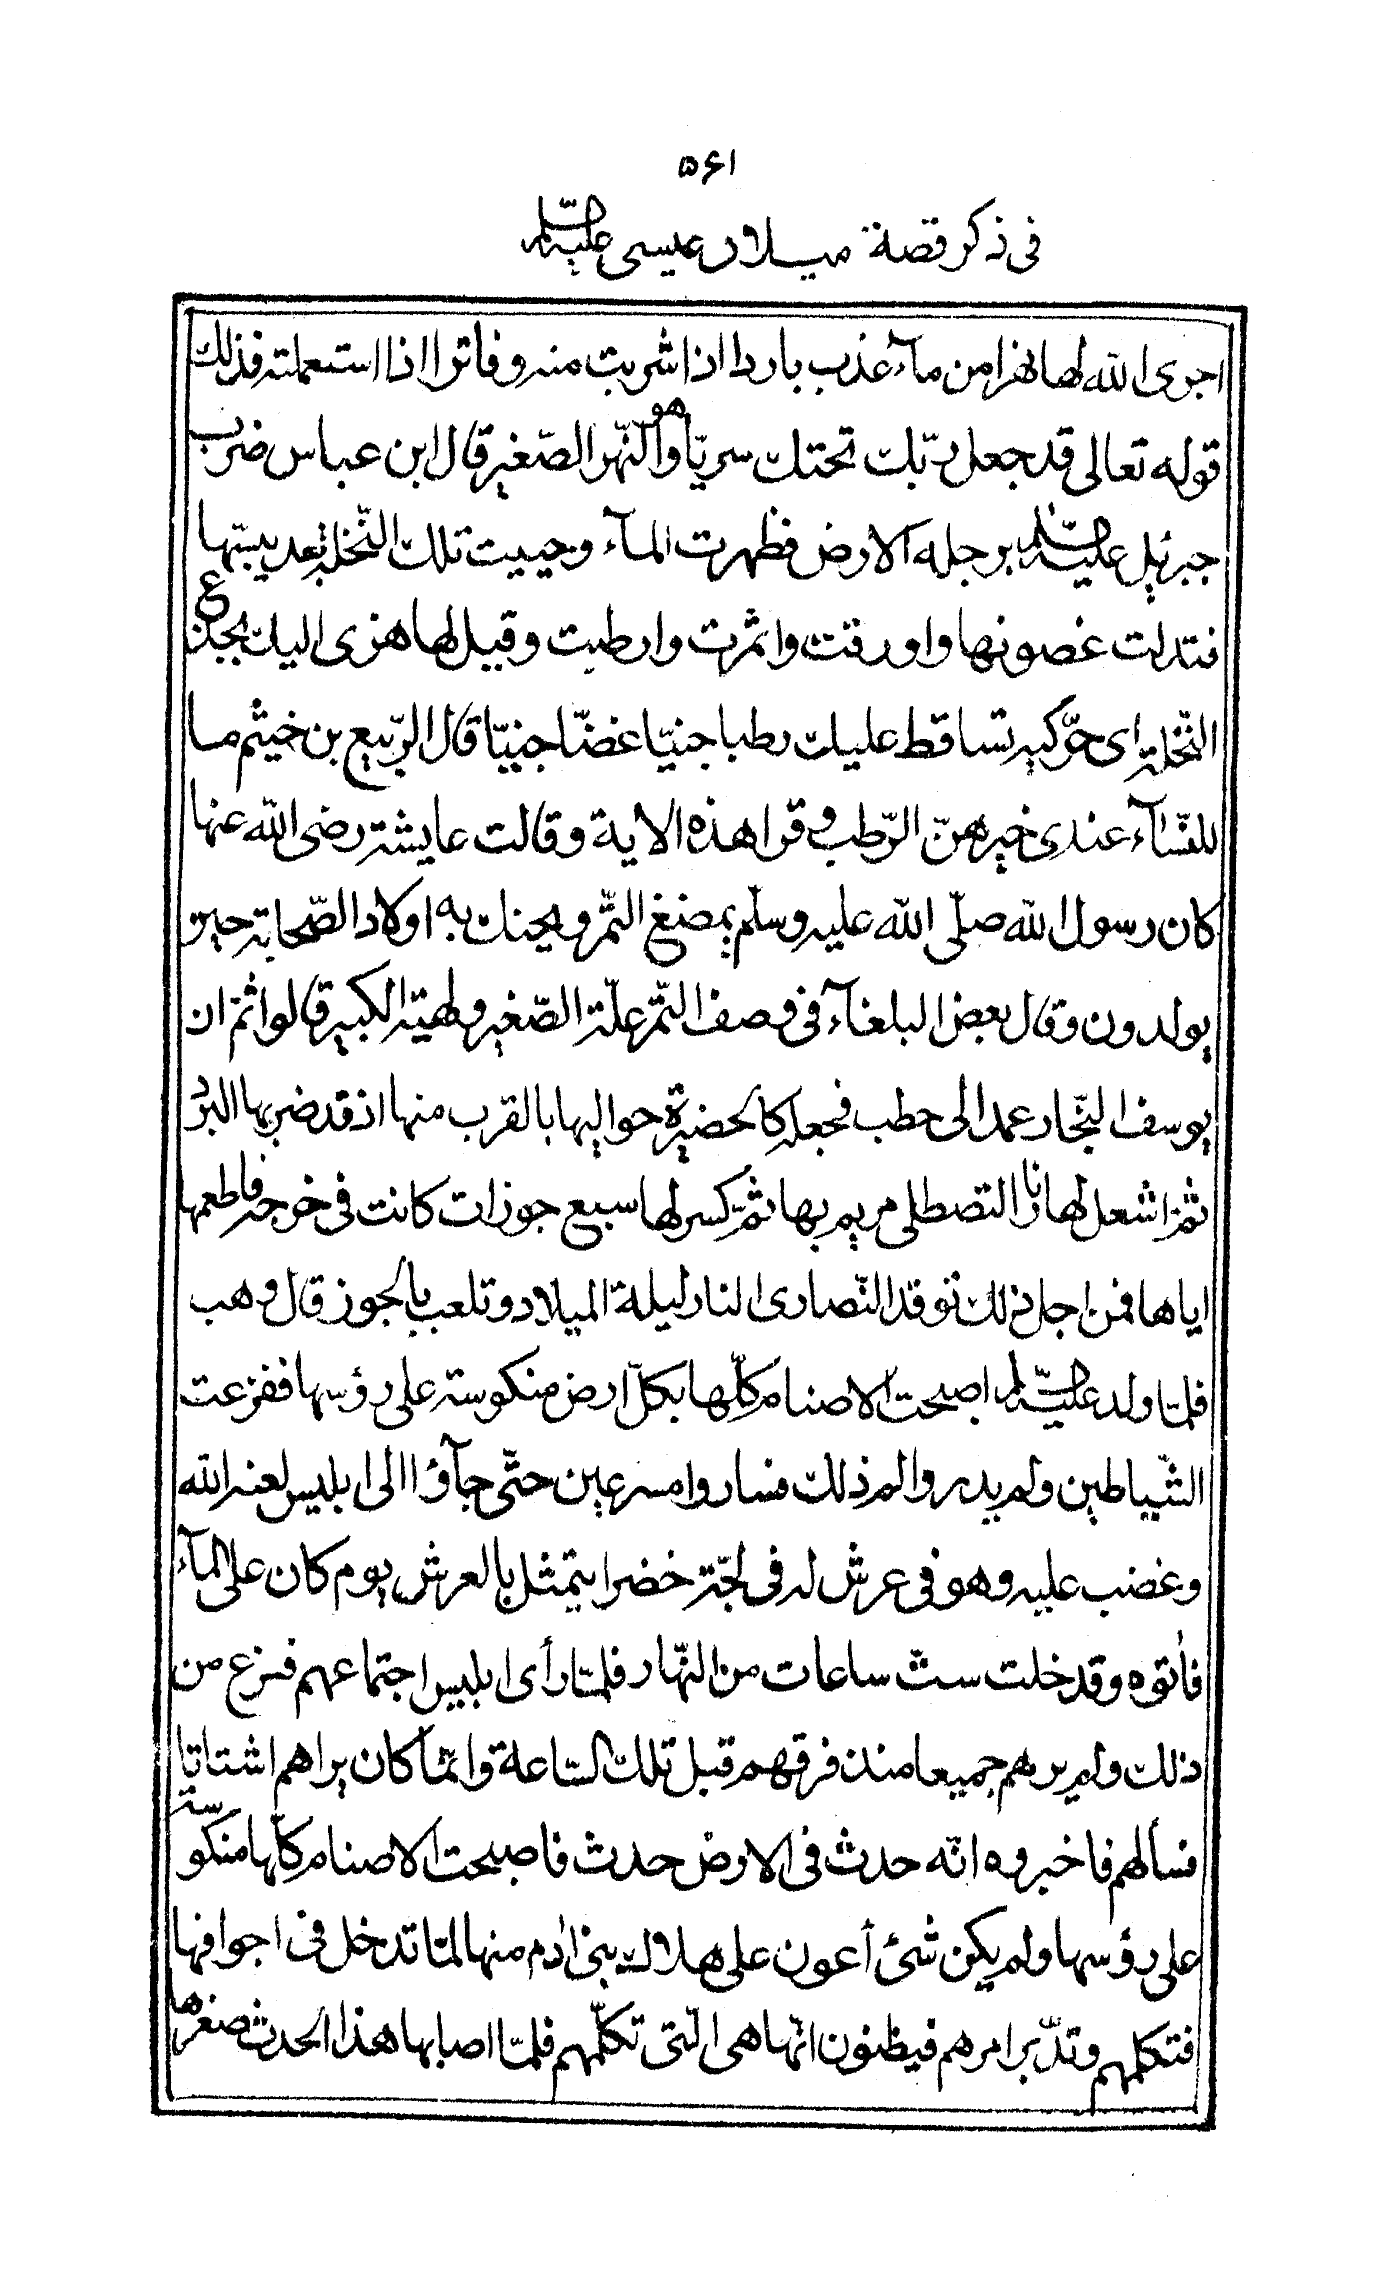 ۵۶۱
فی ذکر قصة میلاد عیسی علیه السلم
اجری الله لها نهرا من مآء عذب باردا اذا شربت منه و فاترا اذا استعملته فذلك
قوله تعالی قد جعل ربّك تحتك سریّا و هو النّهر الصّغیر قال ابن عباس ضرب
جبرئیل علیه السّلم برجله الارض فظهرت المآء و حییت تلك النّخلة بعد یبسّها
فتدلت غصونها و اورقت و اثمرت و ارطبت و قیل لها هزی الیك بجذع
النّخلة ای حرّکیه تساقط علیك رطبا جنیّا غضّا جنیّا قال الرّبیع بن خیثم ما
للنّفسآء عندی خیر من الرّطب و قرا هذه الایة و قالت عایشة رضی الله عنها
کان رسول الله صلّی الله علیه و سلّم یمضغ التّمر و یحنك به اولاد الصّحابة حین
یولدون و قال بعض البلغآء فی وصف التّمر علّة الصّغیر و لهیّة الکبیر قالوا ثمّ ان
یوسف النّجّار عمد الی حطب فجعله کالحضیرة حوالیها بالقرب منها اذ قد ضربها البرد
ثمّ اشعل لها نارا لتصطلی مریم بها ثمّ کسر لها سبع جوزات کانت فی خرجه فاطعمها
ایاها فمن اجل ذلك توقد النّصاری النار لیلة المیلاد و تلعب بالجوز قال وهب
فلمّا ولد علیه السّلم اصبحت الاصنام کلّها بکلّ ارض منکوسة علی رؤسها ففزعت
الشّیاطین و لم یدروا لم ذلك فساروا مسرعین حتّی جآؤا الی ابلیس لعنه الله
و غضب علیه و هو فی عرش له فی لجّة خضرا یتمثل بالعرش یوم کان علی المآء
فأتوه و قد خلت ستّ ساعات من النّهار فلمّا رأی ابلیس اجتماعهم فزع من
ذلك و لم یرهم جمیعا منذ فرقهم قبل تلك السّاعة و انّما کان یراهم اشتاتا
فسألهم فاخبروه انّه حدث فی الارض حدث فاصبحت الاصنام کلّها منکوسة
علی رؤسها و لم یکن شئ أعون علی هلاك بنی ادم منها لمّا تدخل فی اجوافها
فتکلمهم و تدّبر امرهم فیظنون انّها هی الّتی تکلّمهم فلمّا اصابها هذا الحدث صغرها